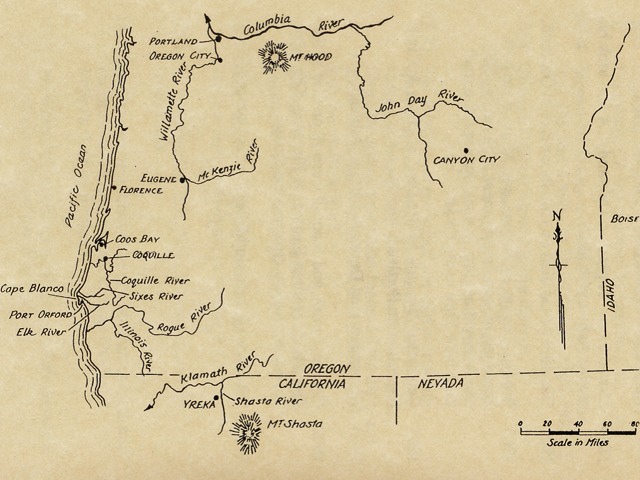 Columbia River
PORTLAND
OREGON CITY
MT HOOD
Willamette River
John Day River
CANYON CITY
Pacific Ocean
EUGENE
McKenzie River
FLORENCE
N
BOISE
COOS BAY
COQUILLE
Coquille River
Cape Blanco
Sixes River
IDAHO
PORT ORFORD
Rogue River
Elk River
Illinois River
Klamath River
OREGON
CALIFORNIA
NEVADA
YREKA
Shasta River
MT Shasta
0 20 40 60 80
Scale in Miles